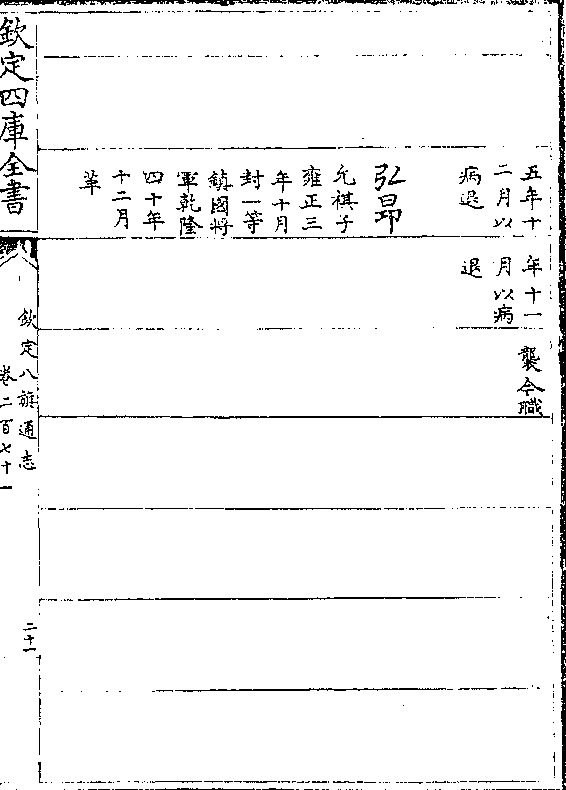 五年十
二月以
病退
弘昂
允祺子
雍正三
年十月
封一等
鎮國將
軍乾隆
四十年
十二月
革
年十一
月以病
退
襲今職
欽定四庫全書
欽定八旗通志
卷二百七十一
二十一